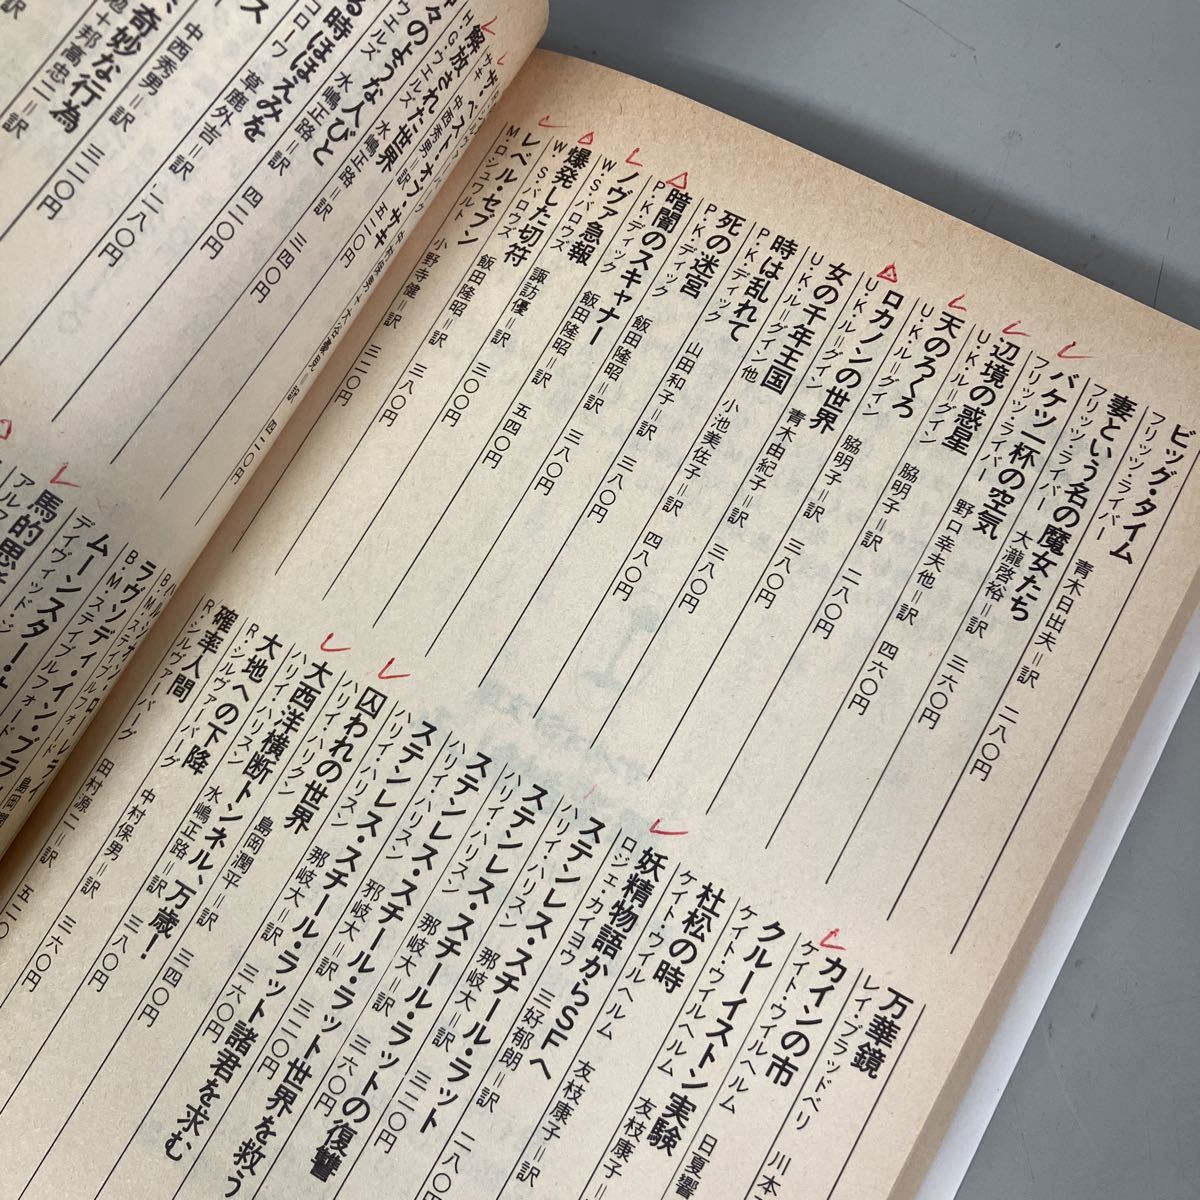 ビッグ・タイム
フリッツ・ライバー 青木日出夫=訳 二八〇円
妻という名の魔女たち
フリッツ・ライバー 大瀧啓裕=訳 三六〇円
バケツ一杯の空気
フリッツ・ライバー 野口幸夫他=訳 四六〇円
辺境の惑星
U・K・ル=グイン 脇明子=訳 二八〇円
天のろくろ
U・K・ル=グイン 脇明子=訳 三八〇円
ロカノンの世界
U・K・ル=グイン 青木由紀子=訳 三八〇円
女の千年王国
U・K・ル=グイン他 小池美佐子=訳 四八〇円
時は乱れて
P・K・ディック 山田和子=訳 三八〇円
死の迷宮
P・K・ディック 飯田隆昭=訳 三八〇円
暗闇のスキャナー
P・K・ディック 飯田隆昭=訳 五四〇円
ノヴァ急報
W・S・バロウズ 諏訪優=訳 三〇〇円
爆発した切符
W・S・バロウズ 飯田隆昭=訳 三八〇円
レベル・セブン
M・ロシュワルト 小野寺健=訳 三二〇円
万華鏡
レイ・ブラッドベリ 川本
カインの市
ケイト・ウイルヘルム 日夏響
クルーイストン実験
ケイト・ウイルヘルム 友枝康子=
杜松の時
ケイト・ウイルヘルム 友枝康子=訳
妖精物語からSFへ
ロジェ・カイヨワ 三好郁朗=訳 二八〇円
ステンレス・スチール・ラット
ハリイ・ハリスン 那岐大=訳 三二〇円
ステンレス・スチール・ラットの復讐
ハリイ・ハリスン 那岐大=訳 三六〇円
ステンレス・スチール・ラット世界を救う
ハリイ・ハリスン 那岐大=訳 三二〇円
ステンレス・スチール・ラット諸君を求む
ハリイ・ハリスン 那岐大=訳 三六〇円
囚われの世界
ハリイ・ハリスン 島岡潤平=訳 三四〇円
大西洋横断トンネル、万歳!
ハリイ・ハリスン 水嶋正路=訳 三八〇円
大地への下降
R・シルヴァーバーグ 中村保男=訳 三六〇円
確率人間
R・シルヴァーバーグ 田村源二=訳 五二〇
ザ・ベスト・オブ・サキ
サキ 中西秀男=訳 五二〇円
解放された世界
H・G・ウエルズ 水嶋正路=訳 三四〇円
々のような人びと
ウエルズ 水嶋正路=訳 三四〇円
る時ほほえみを
コローワ 草鹿外吉=訳 四二〇円
ス
中西秀男=訳 二八〇円
、奇妙な行為
勉+邦高忠二=訳 三二〇円
ラヴンディ・イン・ブラ
B・M・ステイブルフォード 島岡潤
ムーンスター・オ
デイヴィッド・ジ
馬的思
アルフ